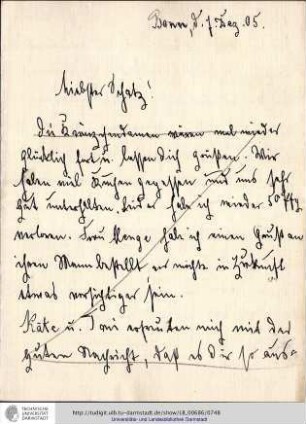 Bonn, d. 7. Dez. 05.
Liebster Schatz!
Die Kränzchendamen wären mal wieder
glücklich fort u. lassen Dich grüßen. Wir
haben viel Kuchen gegessen und uns sehr
gut unterhalten. Leider habe ich wieder 50 Pfg.
verloren. Frau habe ich einen Gruß an
ihren Mann bestellt er möchte in Zukunft
etwas vorsichtiger sein.
Käte u. erfreuten mich mit der
guten Nachricht, daß es Dir so aus-
TECHNISCHE
UNIVERSITÄT
DARMSTADT
http://tudigit.ulb.tu-darmstadt.de/show/LB_00686/0748
Universitäts- und Landesbibliothek Darmstadt